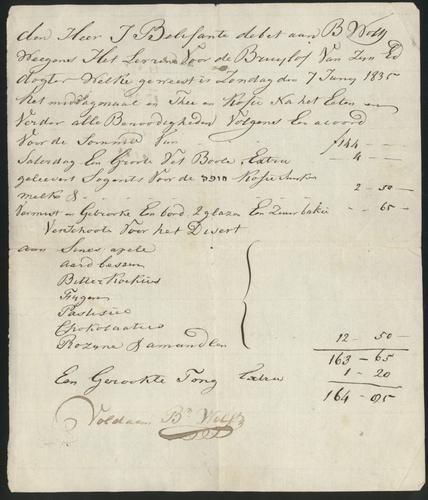 den Heer J Belifante debet aan B Wolf
Weegens Het Leveren Voor de Bruylof Van Zyn Ed
dogter Welke geweest is Zondag den 7 Juny 1835
Het middagmaal en Thee en Kofie Na het Eeten en
Verder alle Benoodigheden Volgens En acoord
Voor de Somma Van f144 - -
Saturdag En Groote Vat Boole Extra - 4 - -
gelevert Sogents Voor de חופה Kofie
melk &. 2 - 50 -
Vermist en Gebrooke En bord 2 glazen En - - 65 -
Verschoote Voor het Desert
aan Sines apele
aardbessen
Bitter Koekies
Fuygen
Pasteies
Chokolaaties
Rozyne & amandlen 12 - 50 -
163 - 65
Een Gerookte Tong Extra 1 - 20
164 - 85
Voldaan B Wolf